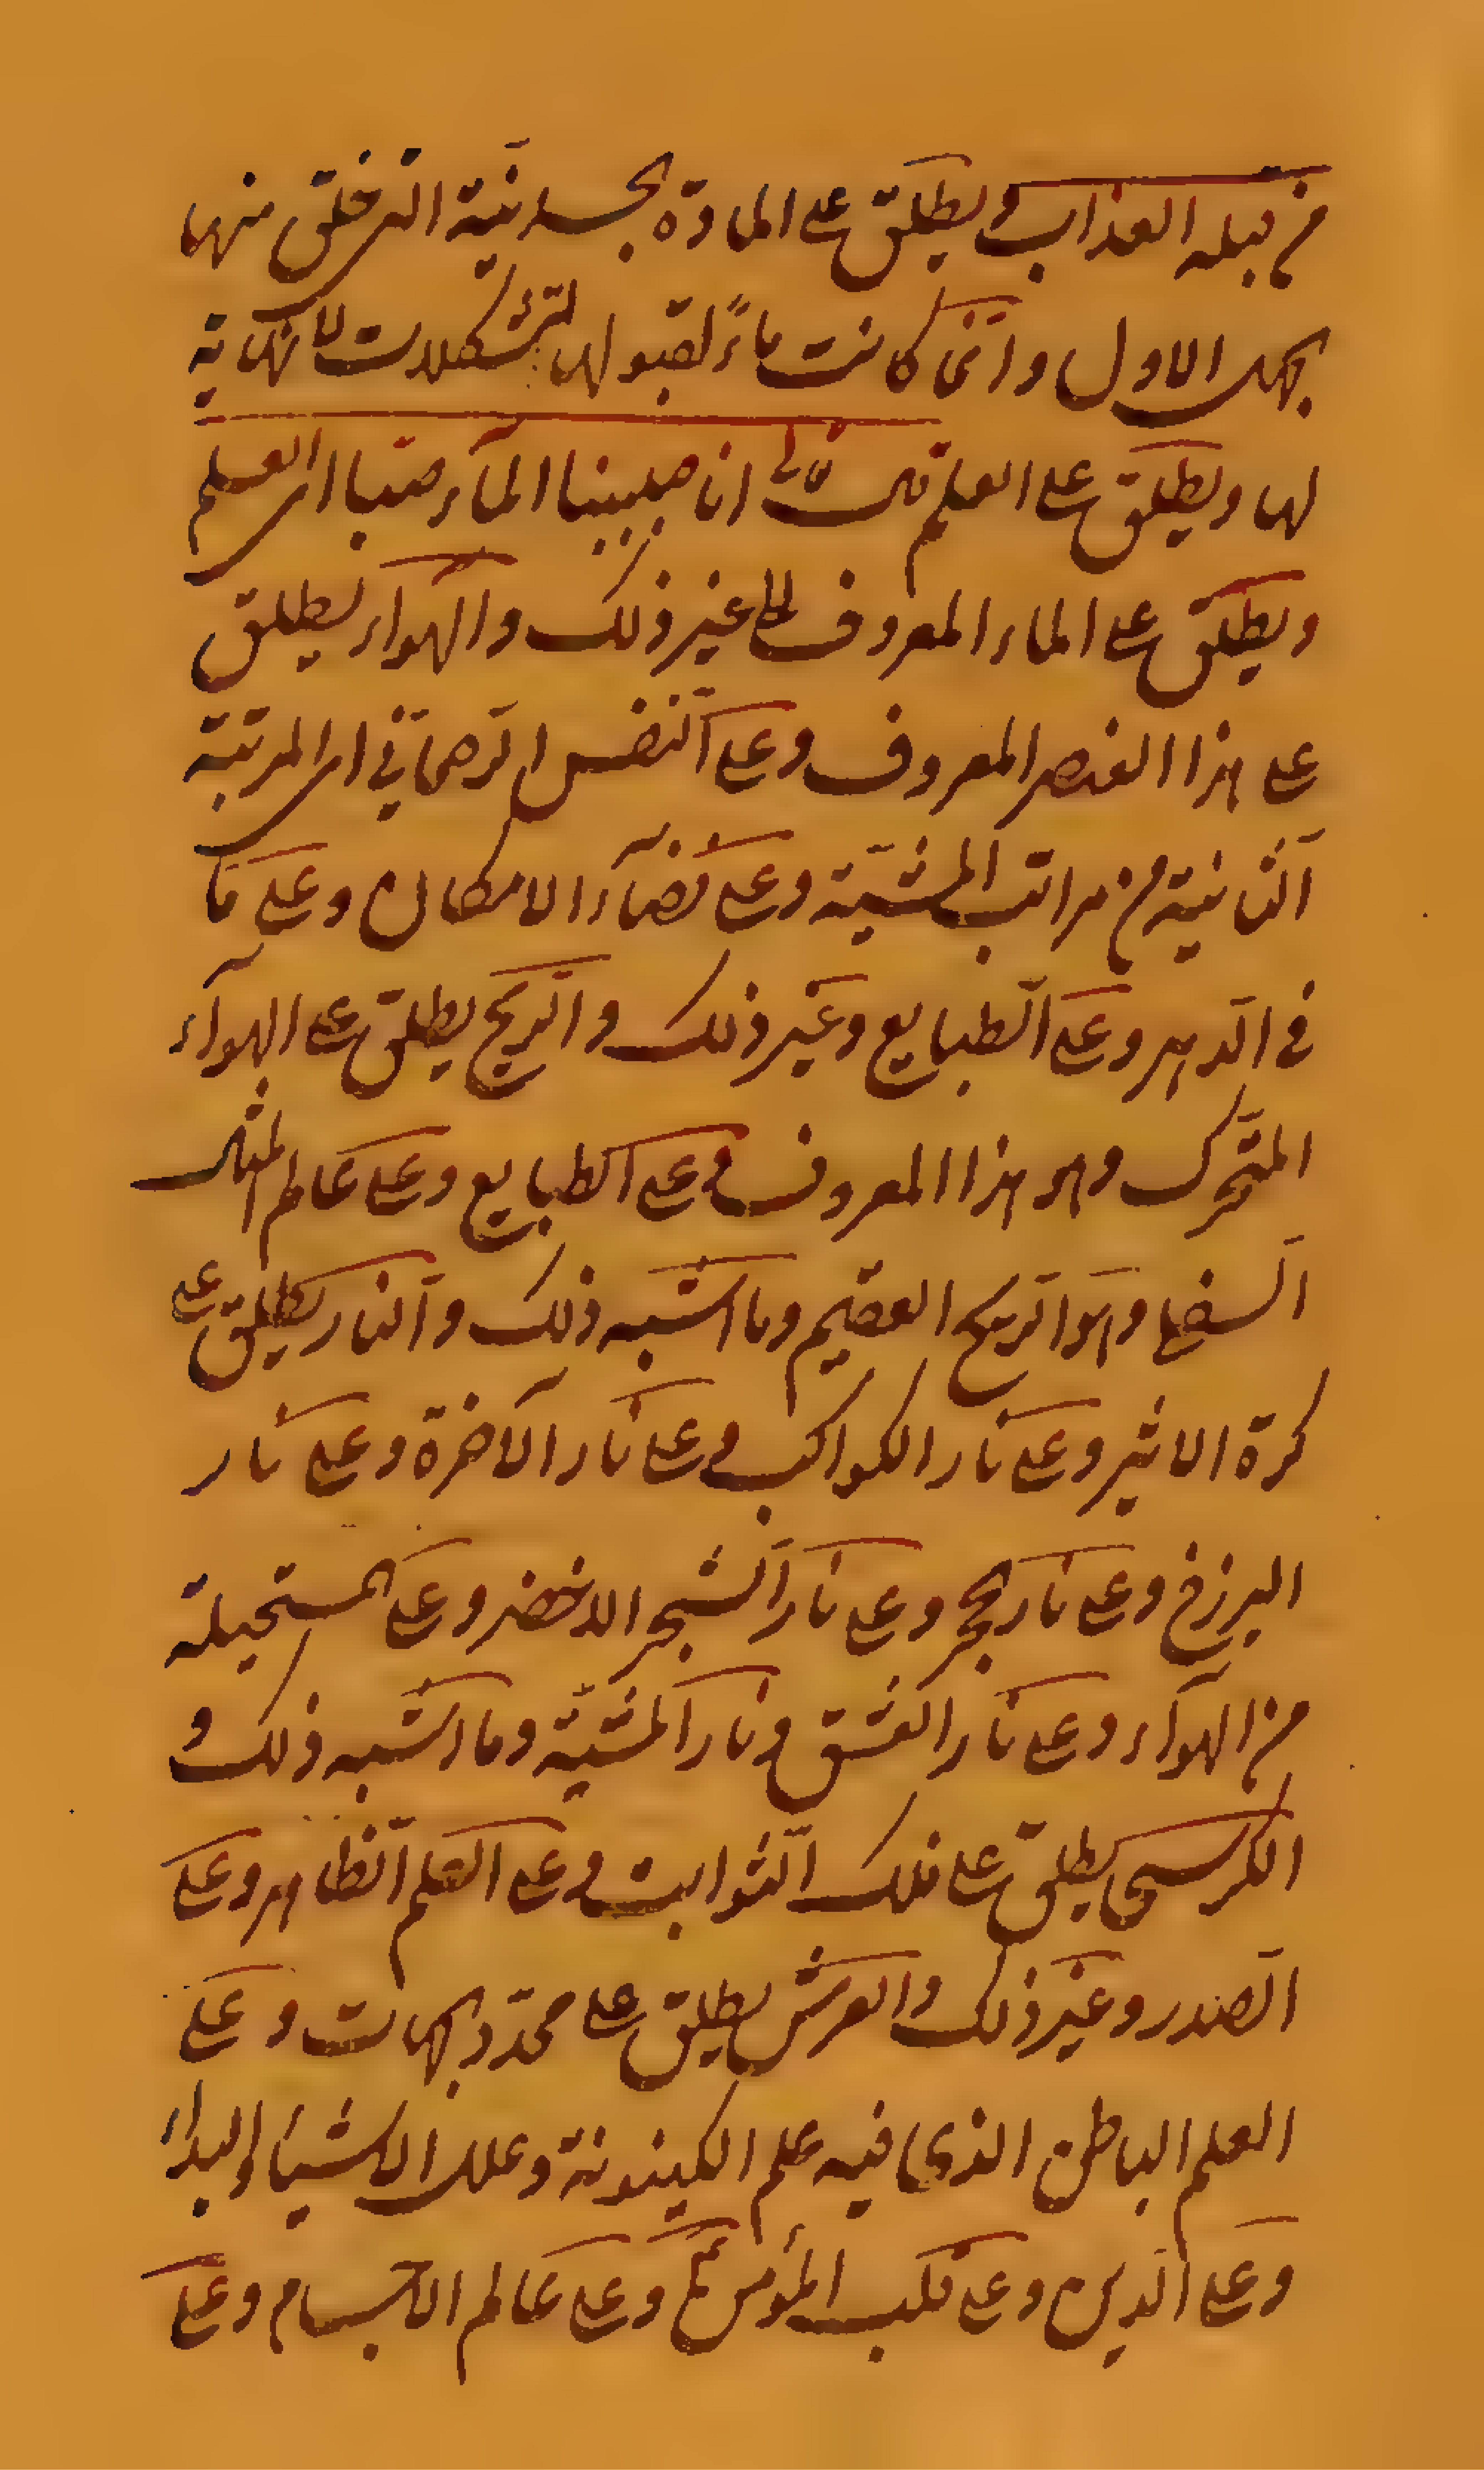 من قبله العذاب ويطلق على المادة الجسمانية التي خلق منها
الجهل الاول وانما كانت ماءً لقبولها لتشكلات لا نهاية
لها ويطلق على العلم قال تعالى انا صببنا الماء صبا اى العلم
ويطلق على الماء المعروف الى غير ذلك والهواء يطلق
على هذا العنصر المعروف وعلى النفس الرحمانى اى المرتبة
الثانية من مراتب المشيّة وعلى فضاء الامكان وعلى ما
فى الدهر وعلى الطبايع وغير ذلك والريح يطلق على الهواء
المتحرك وهو هذا المعروف وعلى الطبايع وعلى عالم المثال
السفلى وهو الريح العقيم وما اشبه ذلك والنار يطلق على
كرة الاثير وعلى نار الكواكب وعلى نار الآخرة وعلى نار
البرزخ وعلى نار الحجر وعلى نار الشجر الاخضر وعلى المستحيلة
من الهواء وعلى نار العشق ونار المشيّة وما اشبه ذلك و
الكرسى يطلق على فلك الثوابت وعلى العلم الظاهر وعلى
الصدر وغير ذلك والعرش يطلق على محدد الجهات وعلى
العلم الباطن الذى فيه علم الكينونة وعلل الاشياء والبداء
وعلى الدين وعلى قلب المؤمن وعلى عالم الاجسام وعلى